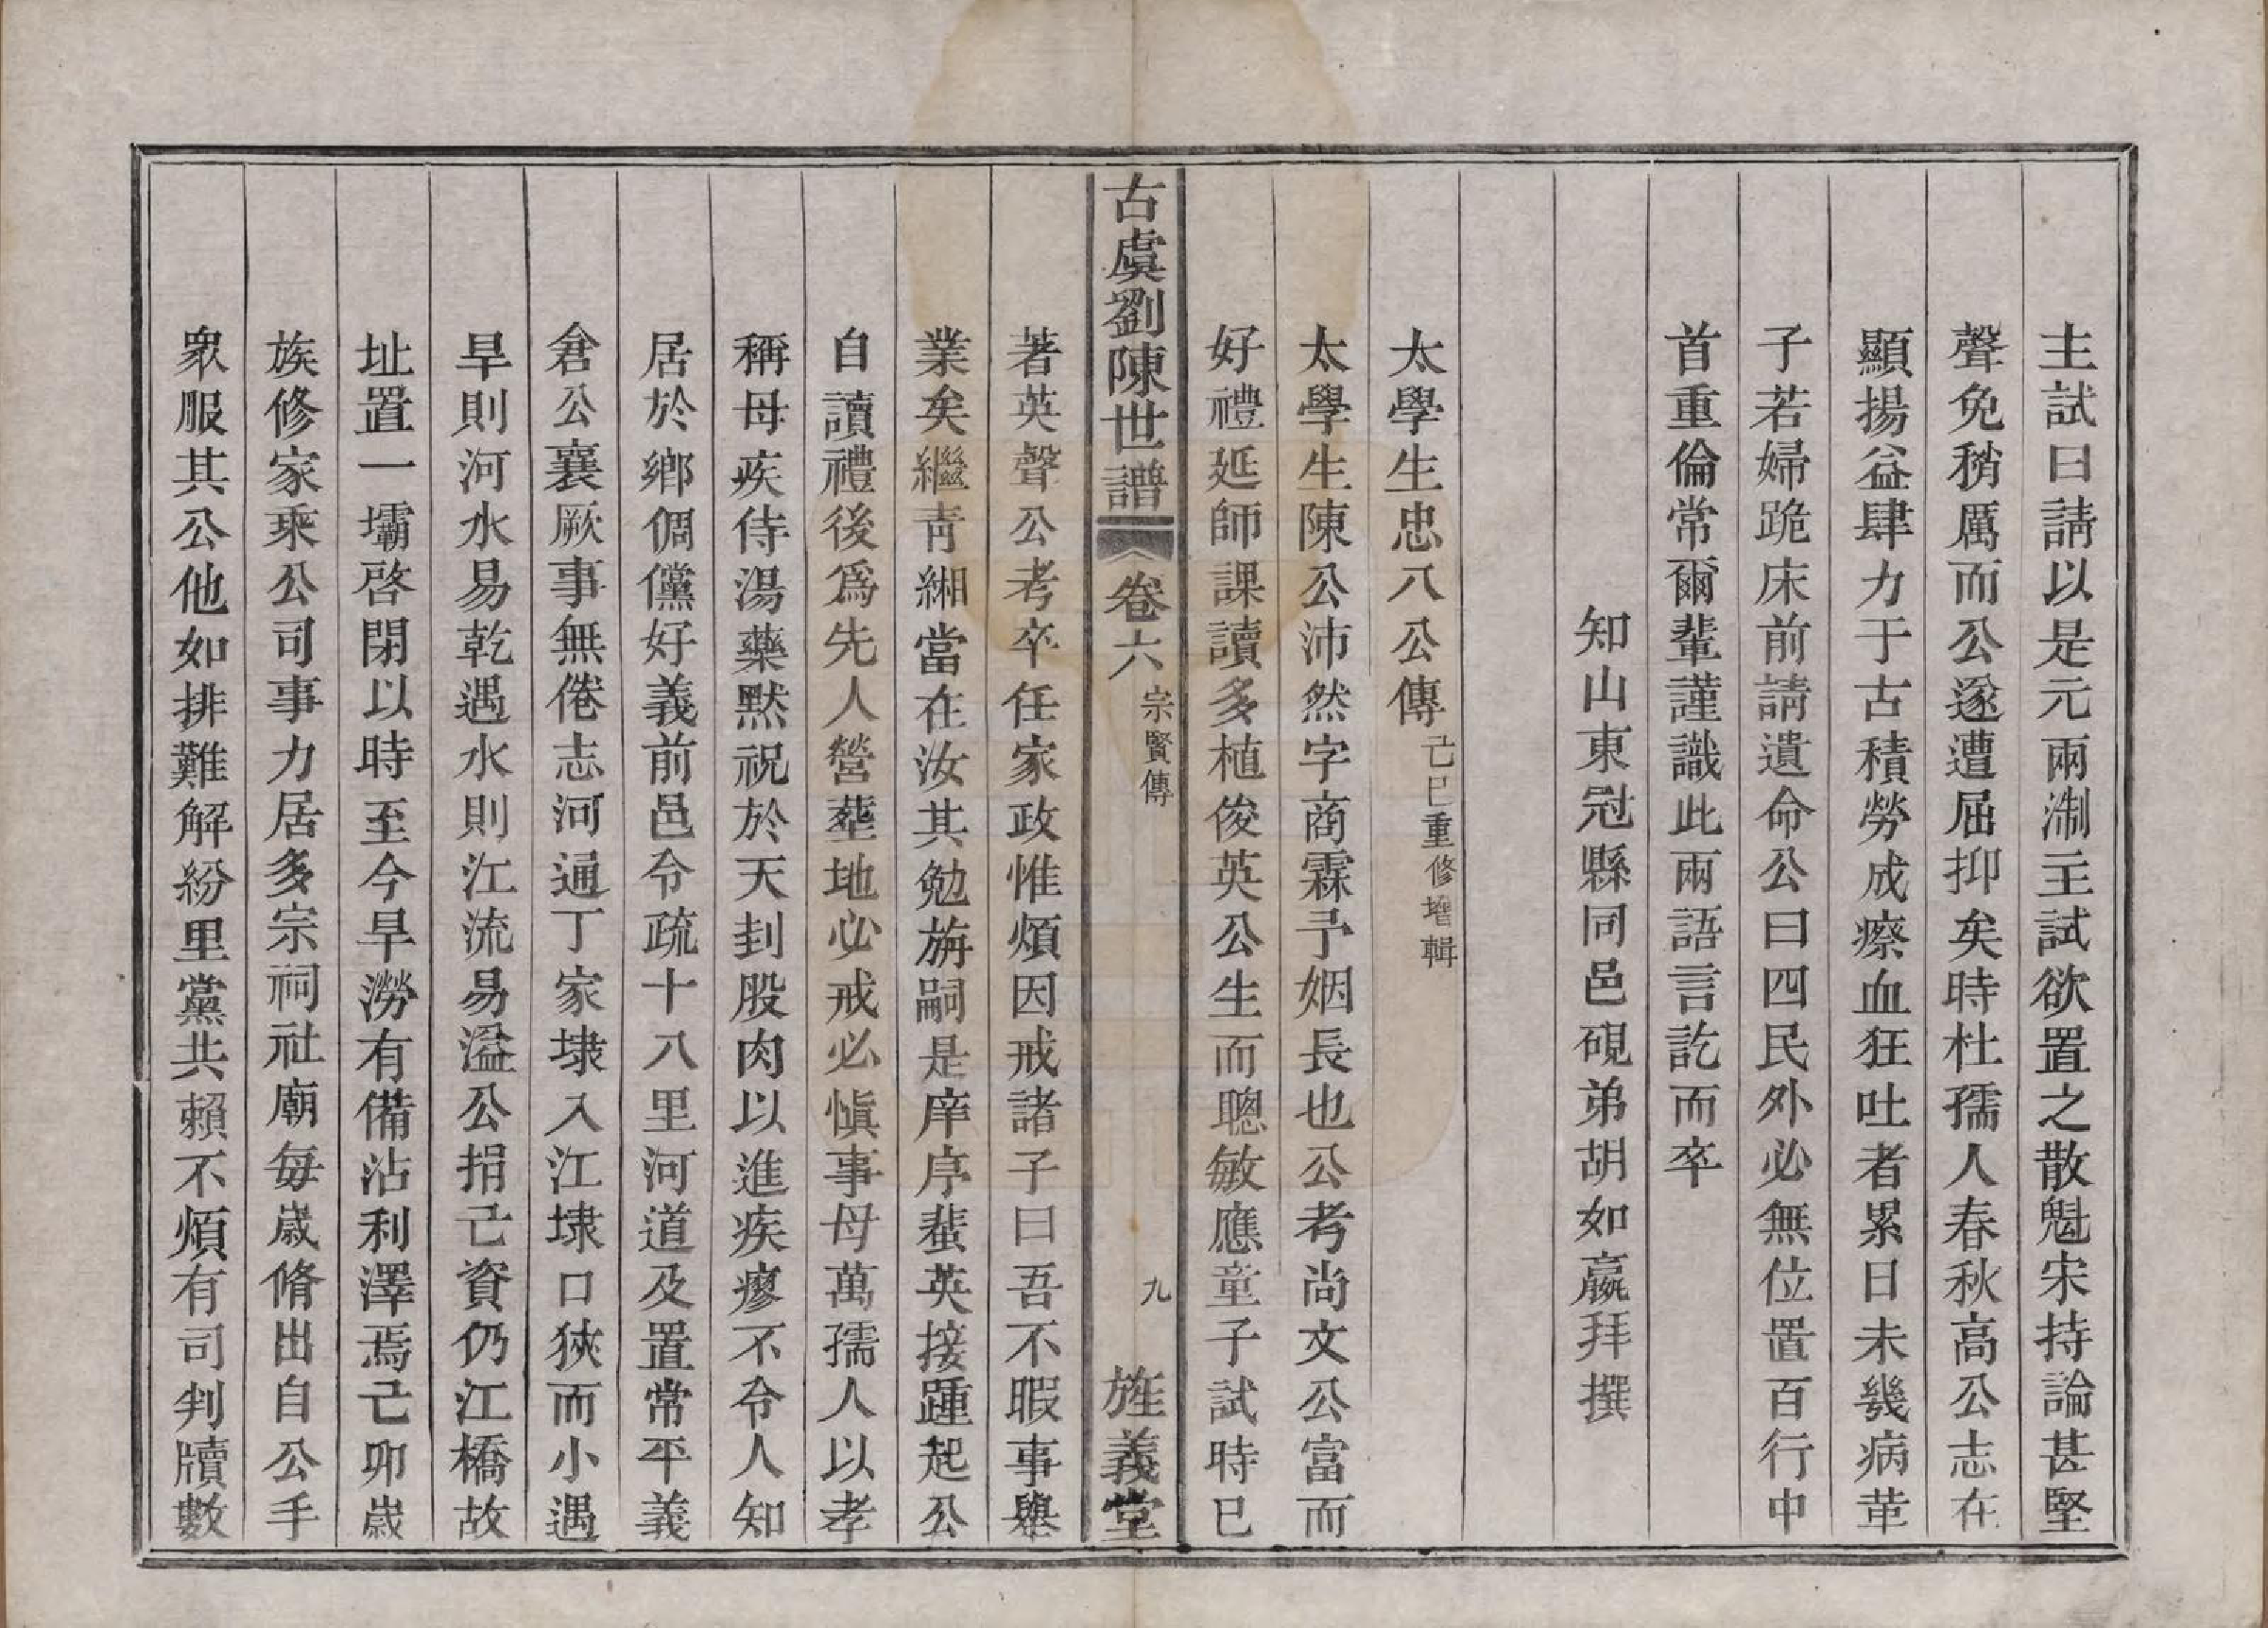 主試曰請以是元兩淛主試欲置之散魁宋持論甚堅
聲免稍厲而公遂遭屈抑矣時杜孺人春秋高公志在
顯揚益肆力于古積勞成瘵血狂吐者累日未幾病革
子若婦跪床前請遺命公曰四民外必無位置百行中
首重倫常爾輩謹識此兩語言訖而卒
知山東冠縣同邑硯弟胡如瀛拜撰
太學生忠八公傳己巳重修增輯
太學生陳公沛然字商霖予姻長也公考尚文公富而
好禮延師課讀多植俊英公生而聰敏應童子試時已
古虞劉陳世譜 卷六 宗賢傳 九 旌義堂
著英聲公考卒任家政惟煩因戒諸子曰吾不暇事舉
業矣繼靑緗當在汝其勉旃嗣是庠序蜚英接踵起公
自讀禮後爲先人營塟地必戒必愼事母萬孺人以孝
稱母疾侍湯藥默祝於天刲股肉以進疾瘳不令人知
居於鄉倜儻好義前邑令疏十八里河道及置常平義
倉公襄厥事無倦志河通丁家埭入江埭口狹而小遇
旱則河水易乾遇水則江流易溢公捐己資仍江橋故
址置一壩啓閉以時至今旱澇有備沾利澤焉己卯歲
族修家乘公司事力居多宗祠社廟每歲脩出自公手
衆服其公他如排難解紛里黨共賴不煩有司判牘數